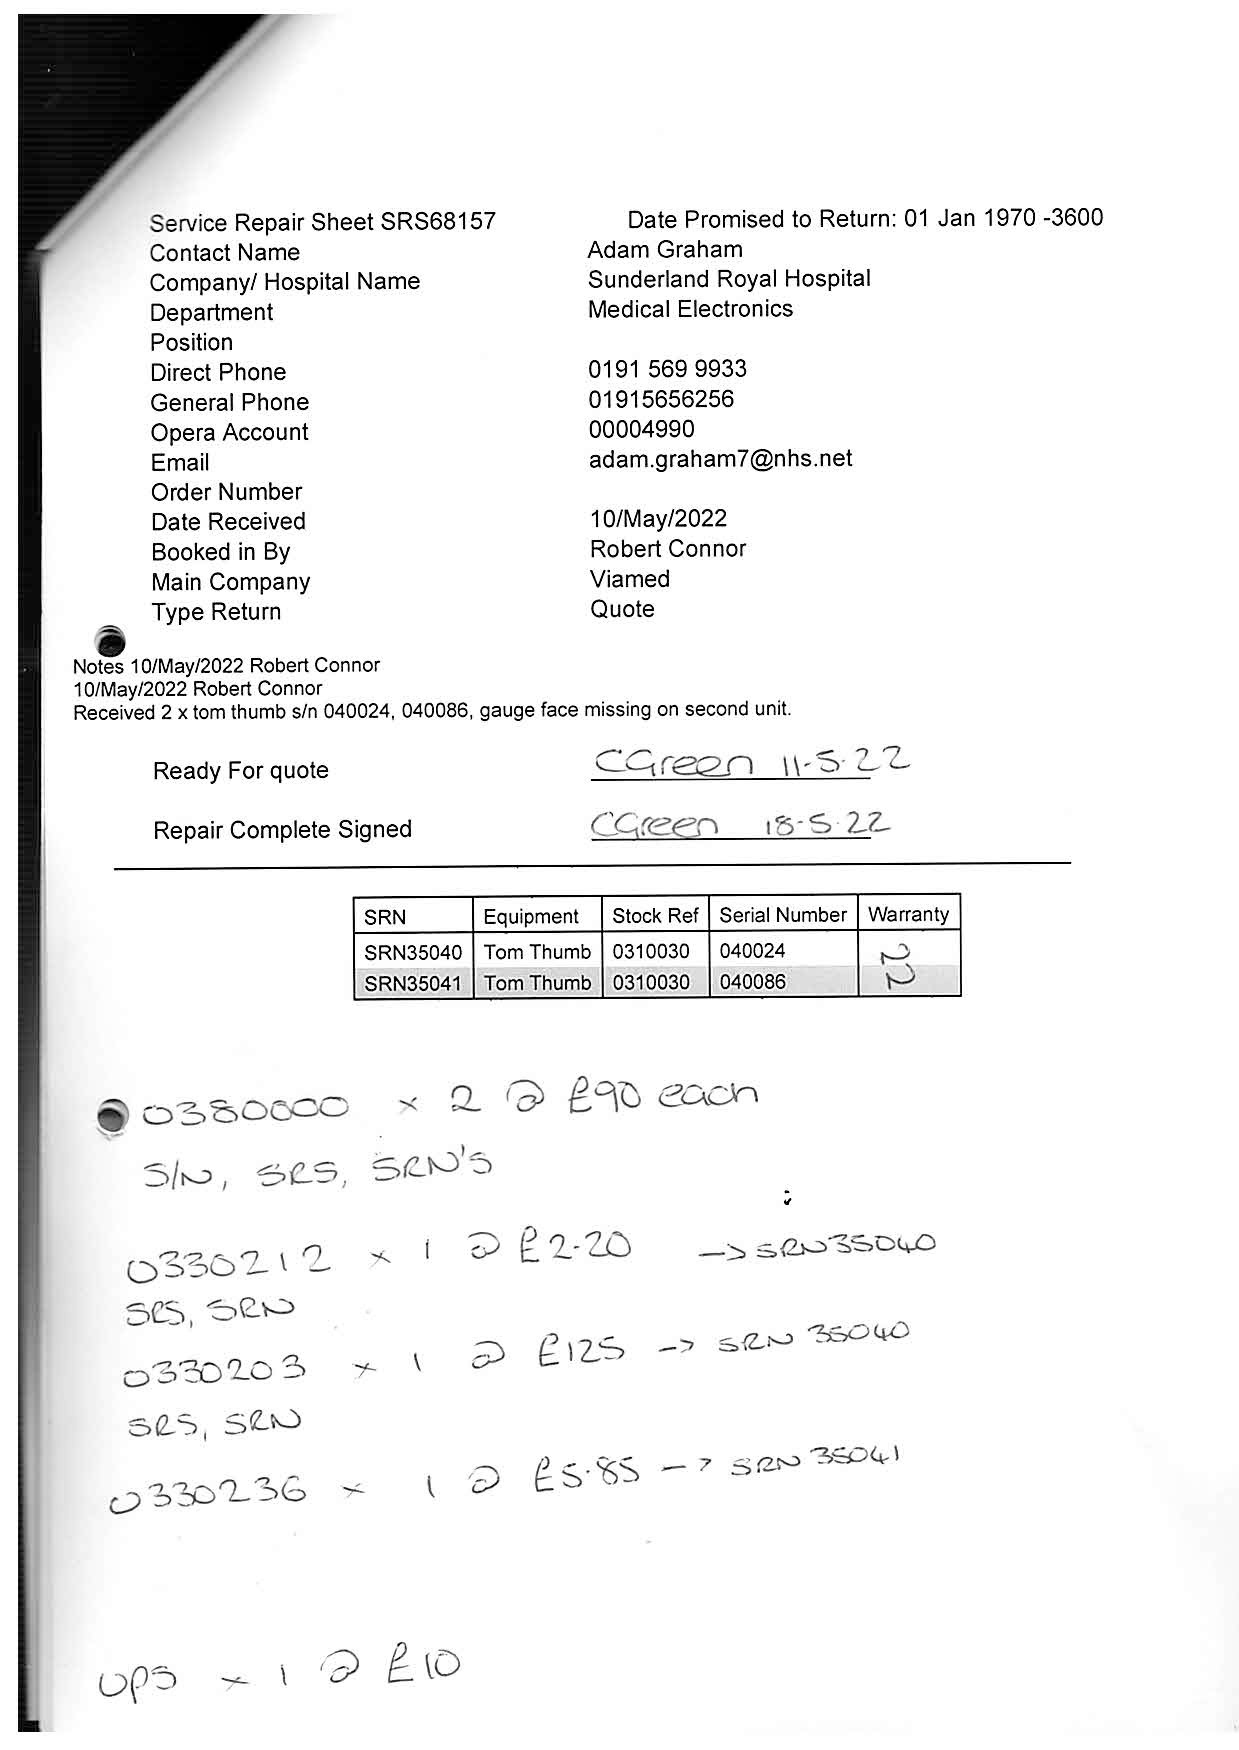 Service Repair Sheet SRS68157 Date Promised to Return: 01 Jan 1970 -3600
Contact Name Adam Graham
Company/ Hospital Name Sunderland Royal Hospital
Department Medical Electronics
Position
Direct Phone 0191 569 9933
General Phone 01915656256
Opera Account 00004990
Email adam.graham7@nhs.net
Order Number
Date Received 10/May/2022
Booked in By Robert Connor
Main Company Viamed
Type Return Quote
Notes 10/May/2022 Robert Connor
10/May/2022 Robert Connor
Received 2 x tom thumb s/n 040024, 040086, gauge face missing on second unit.
Ready For quote CGreen 11-5-22
Repair Complete Signed CGreen 18-5-22
SRN Equipment Stock Ref Serial Number Warranty
SRN35040 Tom Thumb 0310030 040024 N
SRN35041 Tom Thumb 0310030 040086 N
0380000 x 2 @ £90 each
S/N, SRS, SRN's
0330212 x 1 @ £2.20 -> SRN35040
SRS, SRN
0330203 x 1 @ £125 -> SRN 35040
SRS, SRN
0330236 x 1 @ £5.85 -> SRN 35041
UPS x 1 @ £10